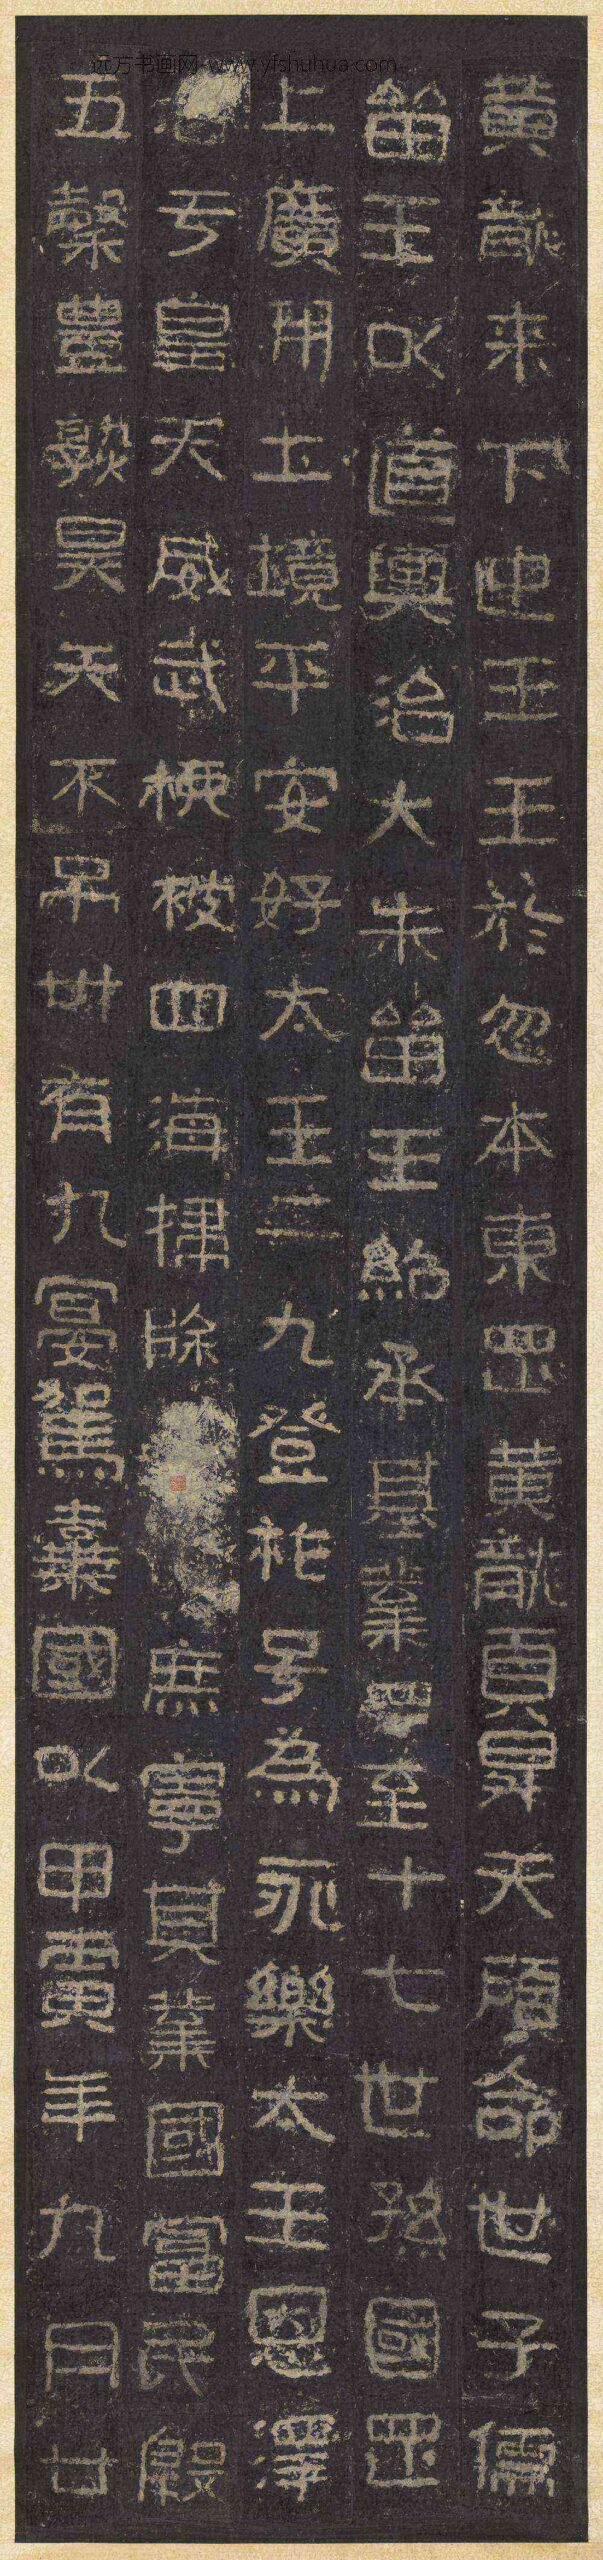 远方书画网-www.yfshuhua.com
黃龍来下迎王王於忽本東罡黃龍頁昇天顧命世子儒
留王以道輿治大朱留王紹承基業至十七世孫國罡
上廣開土境平安好太王二九登祚号為永樂太王恩澤
于皇天威武被四海掃除庶寧其業國富民殷
五穀豊熟昊天不弔卅有九宴駕棄國以甲寅年九月廿